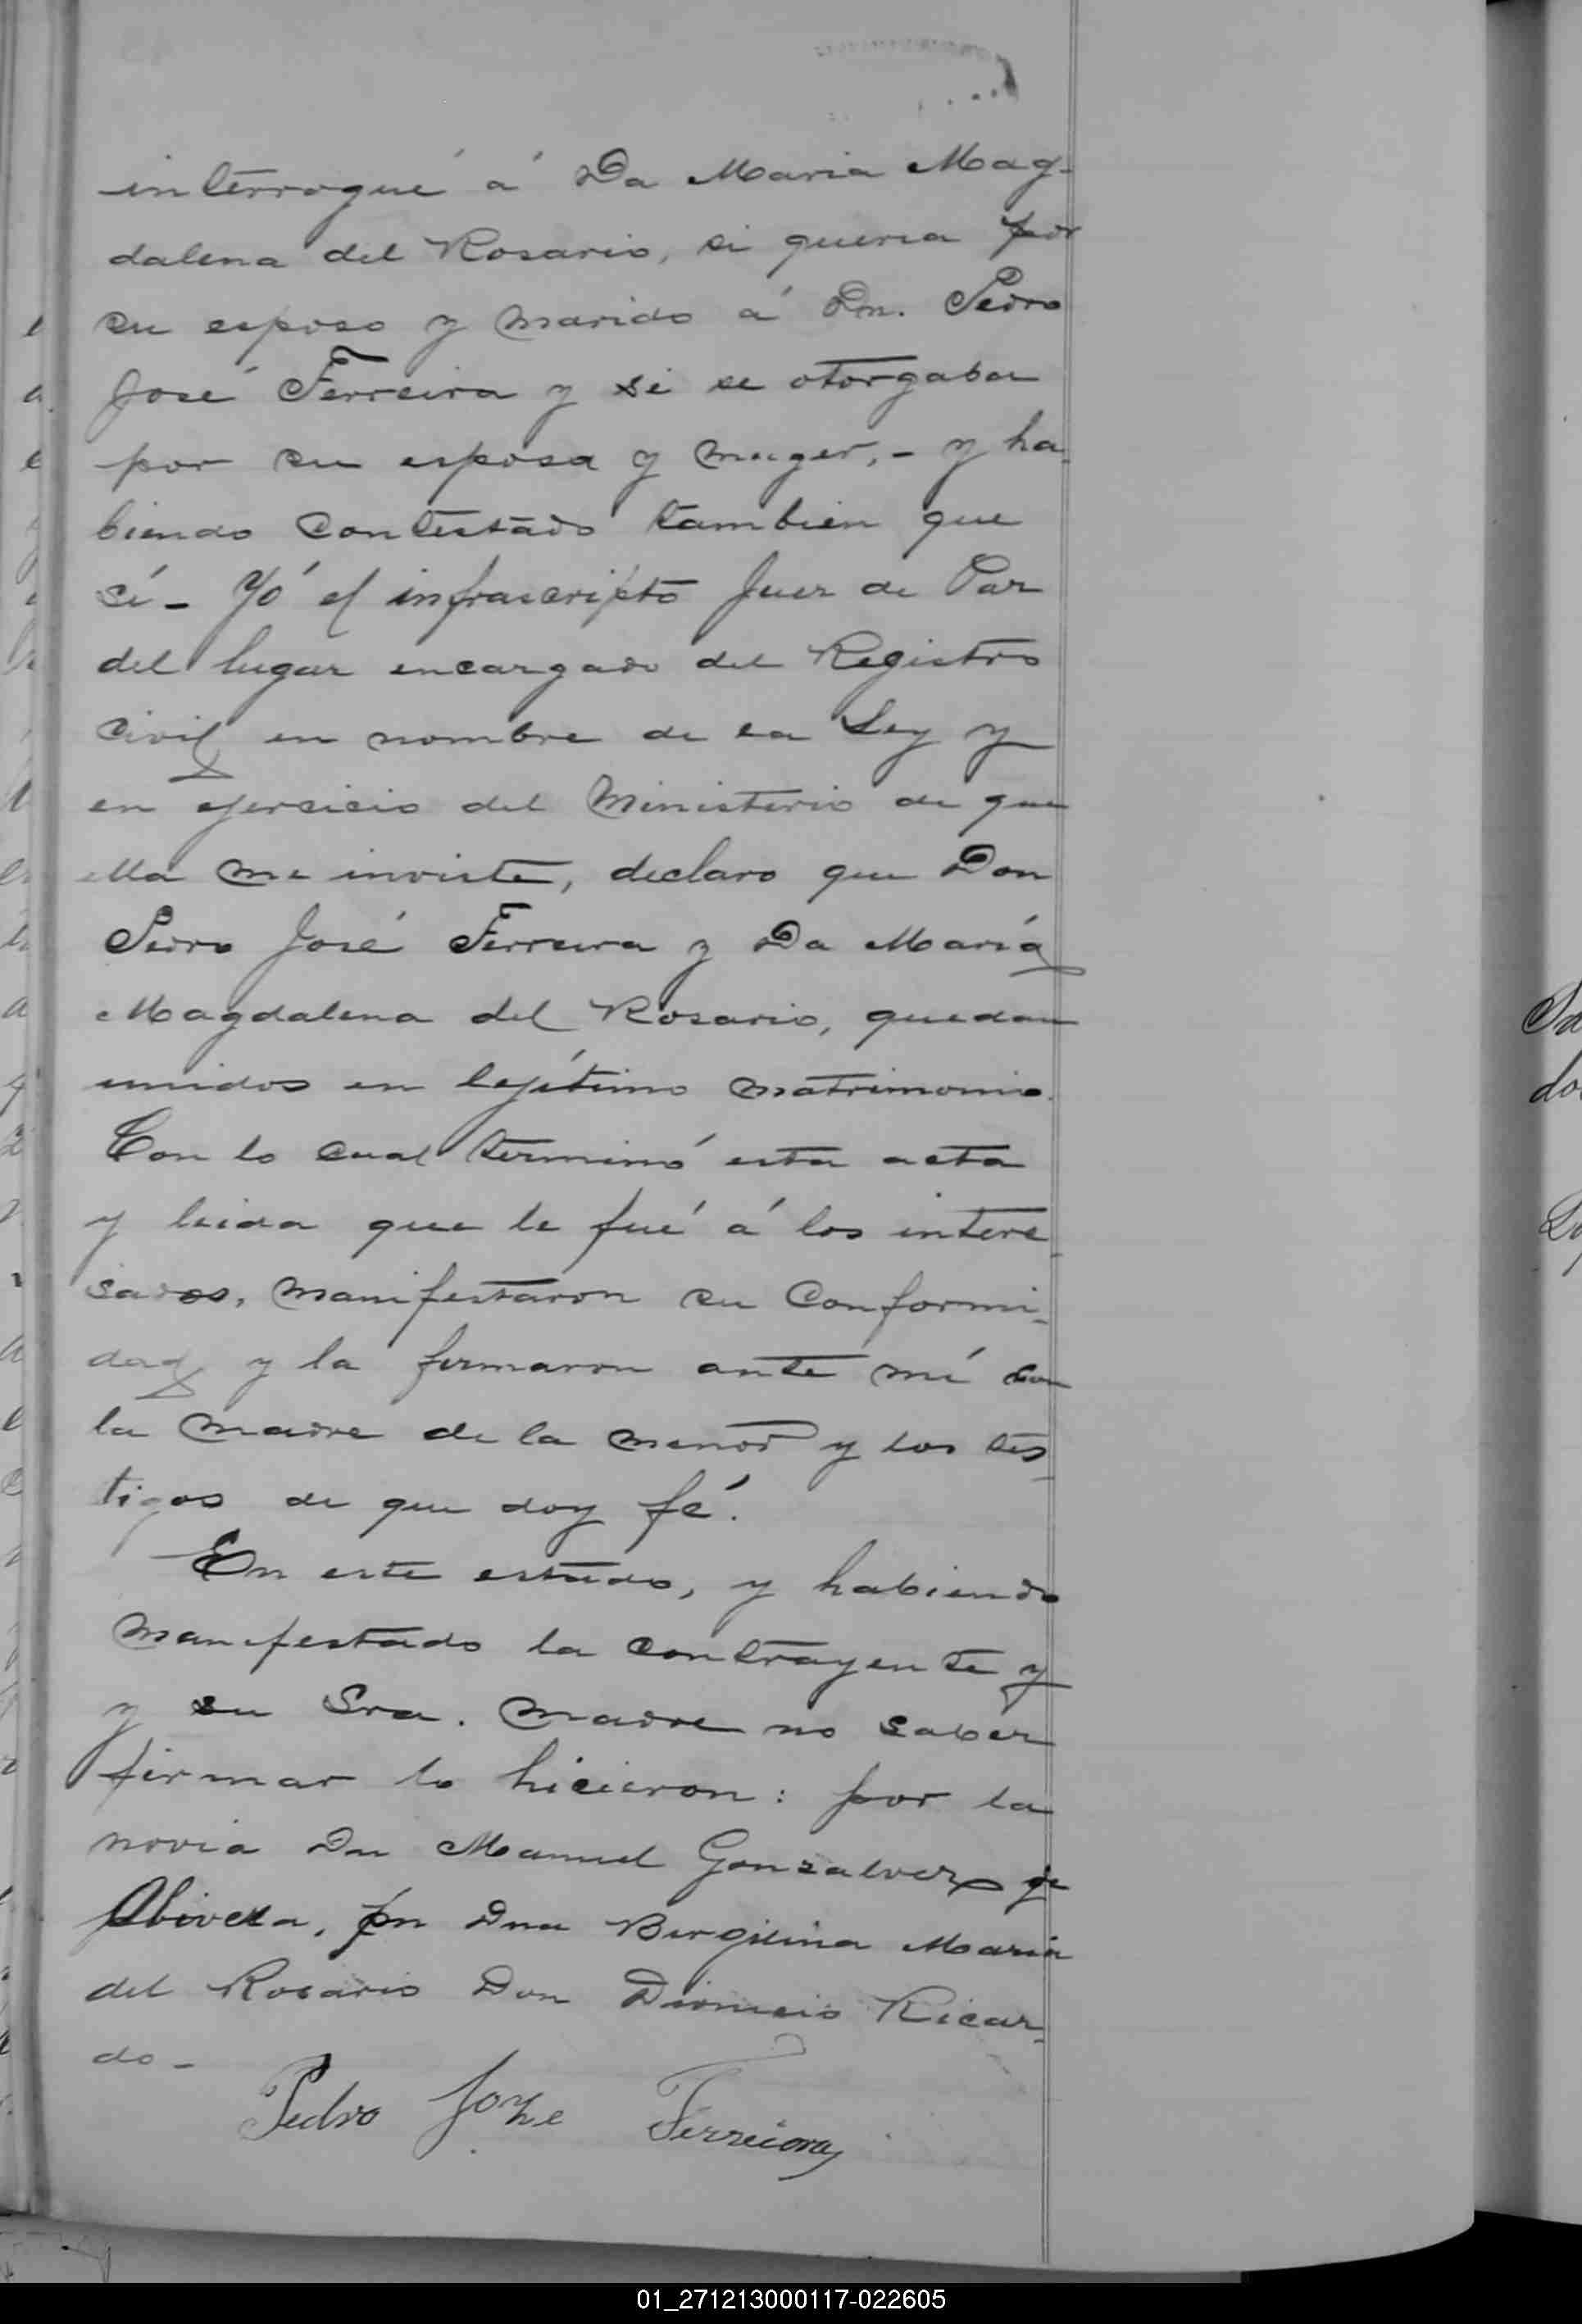 interrogué á Da Maria Mag-
dalena del Rosario, si queria por
su esposo y marido á Dn. Pedro
José Ferreira y si se otorgaba
por su esposa y muger,- y ha-
biendo contestado tambien que
sí - Yó el infrascripto Juez de Paz
del lugar encargado del Registro
Civil en nombre de la Ley y
en ejercicio del Ministerio de que
ella me inviste, declaro que Don
Pedro José Ferreira y Da María
Magdalena del Rosario, quedan
unidos en lejítimo matrimonio.
Con lo cual terminó esta acta
y leida que le fué á los intere-
sados, manifestaron su conformi-
dad y la firmaron ante mí con
la madre de la menor y los tes-
tigos de que doy fé.
En este estado, y habiendo
manifestado la contrayente y
y su Sra. madre no saber
firmar lo hicieron: por la
novia Dn Manuel Gonzalvez de
Olivera, pr Dna Birgilina Maria
del Rosario Don Dionicio Ricar-
do -
Pedro Joze Ferreiora
01_271213000117-022605